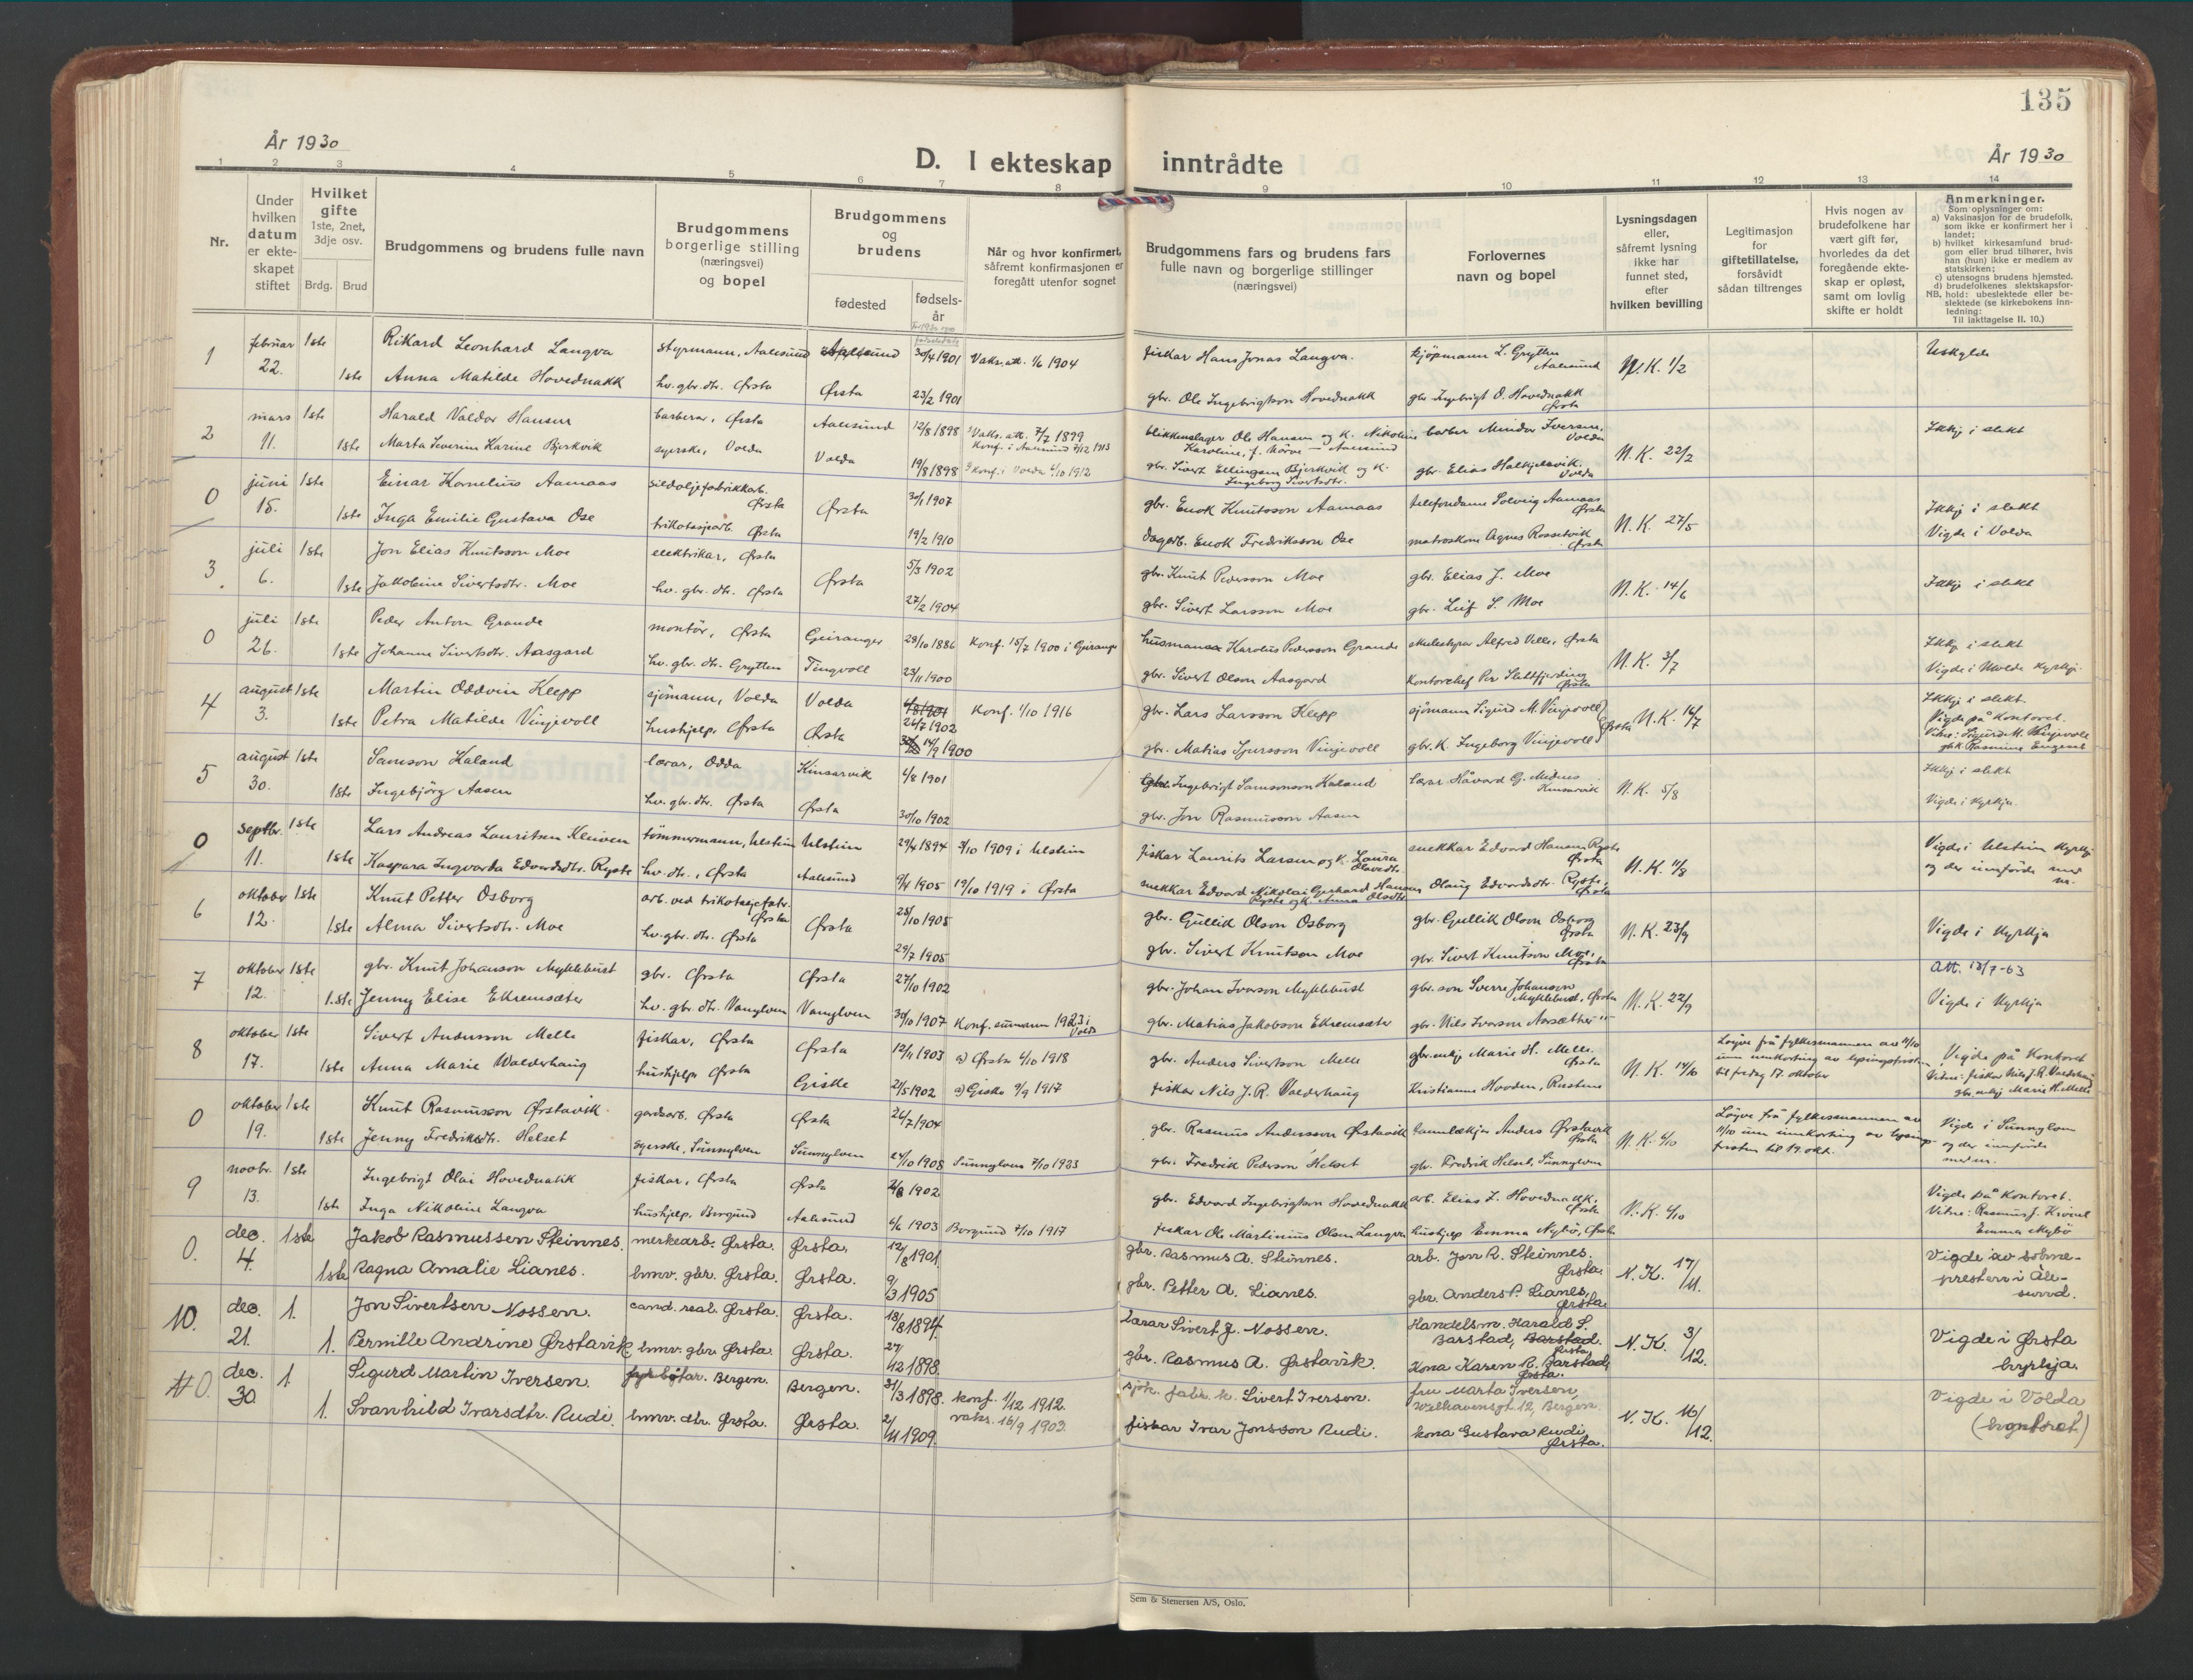 135
År 1930
D. I ekteskap inntrådte
År 1930
1 2 3 4 5 6 7 8 9 10 11 12 13 14
Nr.
Under hvilken datum er ekteskapet stiftet
Hvilket gifte 1ste, 2net, 3dje osv.
Brdg. Brud
Brudgommens og brudens fulle navn
Brudgommens borgerlige stilling (næringsvei) og bopel
Brudgommens og brudens
fødested
fødselsår
Når og hvor konfirmert, såfremt konfirmasjonen er foregått utenfor sognet
Brudgommens fars og brudens fars fulle navn og borgerlige stillinger (næringsvei)
Forlovernes navn og bopel
Lysningsdagen eller, såfremt lysning ikke har funnet sted, efter hvilken bevilling
Legitimasjon for giftetillatelse, forsåvidt sådan tiltrenges
Hvis nogen av brudefolkene har vært gift før, hvorledes da det foregående ekteskap er opløst, samt om lovlig skifte er holdt
Anmerkninger.
Som oplysninger om:
a) Vaksinasjon for de brudefolk, som ikke er konfirmert her i landet;
b) hvilket kirkesamfund brudgom eller brud tilhører, hvis han (hun) ikke er medlem av statskirken;
c) utensogns brudens hjemsted.
d) brudefolkenes slektskapsforhold: ubeslektede eller beslektede (se kirkebokens innledning:
NB. Til iakttagelse II. 10.)
1 februar 22. 1ste Rikard Leonhard Langva styrmann, Aalesund Aalesund 30/4 1901 Vaks.att. 1/6 1904 fiskar Hans Jonas Langva. kjöpmann L. Grytten Aalesund N.K. 1/2 Uskylde
1ste Anna Matilde Hovednakk hv. gbr. dtr. Ørsta Ørsta 23/2 1901 gbr. Ole Ingebrigtson Hovednakk gbr Ingebrigt O. Hovednakk Ørsta
2 mars 11. 1ste Harald Valdor Hansen barberar, Ørsta Aalesund 12/8 1898 Vaks. att. 7/7 1899 Konf. i Aalesund 7/12 1913 blikkenslager Ole Hansen og K. Nikoline Karoline, f. Nörve - Aalesund barber Mindor Iversen, Volda N.K. 22/2 Ikkj i slekt
1ste Marta Severine Karine Bjerkvik syerske, Volda Volda 19/8 1898 Konf. i Volda 6/10 1912 gbr. Sivert Ellingsen Bjerkvik og K. Ingeborg Sivertsdtr. gbr. Elias Halkjelsvik. Volda
0 juni 15. 1ste Einar Kornelius Aamaas sildoljefabrikkarb. Ørsta Ørsta 30/1 1907 gbr. Enok Knutsson Aamaas telefondame Solveig Aamaas Ørsta N.K. 27/5 Ikkj i slekt
1ste Inga Emilie Gustava Ose trikotasjearb. Ørsta 19/2 1910 dagarb. Enok Fredriksson Ose matroskone Agnes Rossetvik Ørsta Vigde i Volda
3 juli 6. 1ste Jon Elias Knutsson Moe elektrikar, Ørsta Ørsta 5/3 1902 gbr. Knut Pedersson Moe gbr. Elias J. Moe N.K. 14/6 Ikkj i slekt
1ste Jakobine Sivertsdtr. Moe hv. gbr. dtr. Ørsta 27/2 1904 gbr. Sivert Larsson Moe gbr. Leif S. Moe
0 juli 26. 1ste Peder Anton Grande montör, Ørsta Geiranger 28/10 1886 Konf. 15/7 1900 i Geiranger husmann Karolus Pedersson Grande skulestyrar Alfred Velle, Ørsta N.K. 3/7 Ikkj i slekt
1ste Johanne Sivertsdtr. Aasgard hv. gbr. dtr. Grytten Tingvoll 23/11 1900 gbr. Sivert Olson Aasgard Kontorchef Per Slettfjerding Ørsta Vigde i Molde Kyrkje
4 august 3. 1ste Martin Oddvin Klepp sjömann, Volda Volda 26/7 1902 Konf. 1/10 1916 gbr. Lars Larsson Klepp sjömann Sigurd M. Vinjevoll Ørsta N.K. 16/7 Ikkj i slekt.
1ste Petra Matilde Vinjevoll hushjelp, Ørsta Ørsta 14/9 1900 gbr. Matias Sjursson Vinjevoll gbr.K. Ingeborg Vinjevoll Vigde på Kontoret. Vitne: Sigurd M. Vinjevoll gbk. Rasmine Eugenie
5 august 30. 1ste Samson Haland lærar, Odda Kinsarvik 6/8 1901 Ingebrigt Samsonson Haland lærar Håvard G. Midnes Kinsarvik N.K. 5/8 Ikkj i slekt
1ste Ingebjörg Aasen hv. gbr. dtr. Ørsta Ørsta 30/10 1902 gbr. Jon Rasmusson Aasen Vigde i Kyrkja.
0 septbr. 11. 1ste Lars Andreas Lauritsen Kleiven tömmermann, Ulstein Ulstein 29/4 1894 3/10 1909 i Ulstein fiskar Laurits Larsen og K. Laura Olavsdtr. snekkar Edvard Hansen Ryste Ørsta N.K. 11/8 Vigde i Ulstein Kyrkje
1ste Kaspara Ingvarda Edvardsdtr. Ryste hv. dtr., Ørsta Aalesund 9/4 1905 19/10 1919 i Ørsta snekkar Edvard Nikolai Gerhard Hansen Ryste og K. Anna Olsdtr. Olaug Edvardsdtr. Ryste, Ørsta og der innförde med nr.
6 oktober 12. 1ste Knut Petter Osborg arb. ved trikotasjefabr. Ørsta Ørsta 25/10 1905 gbr. Gullik Olson Osborg gbr. Gullik Olson Osborg Ørsta N.K. 23/9 Vigde i Kyrkja
1ste Alma Sivertsdtr. Moe hv. gbr. dtr. Ørsta 29/7 1905 gbr. Sivert Knutson Moe gbr. Sivert Knutson Moe, Ørsta
7 oktober 12. 1ste gbr. Knut Johanson Myklebust gbr. Ørsta Ørsta 27/10 1902 gbr. Johan Ivarson Myklebust gbr. son Sverre Johanson Myklebust, Ørsta N.K. 22/9 Att. 13/7-63
1ste Jenny Elise Ekremsæter hv. gbr. dtr. Vanylven Vanylven 30/10 1907 Konf. summarn 1923 i Volda gbr. Matias Jakobson Ekremsæter gbr. Nils Ivarson Aarsæther Vigde i Kyrkja
8 oktober 17. 1ste Sivert Andersson Melle fiskar, Ørsta Ørsta 12/11 1903 a) Ørsta 6/10 1918 gbr. Anders Sivertson Melle gbr.enkj Marie H. Melle. Ørsta N.K. 14/10 Löyve frå fylkesmannen av 11/10 um umkorting av lysingsfristen til fredag 17. oktober Vigde på Kontoret
1ste Anna Marie Walderhaug hushjelp Ørsta Giske 21/5 1902 a) Giske 9/9 1917 fiskar Nils J.R. Valderhaug Kristianne Hovden, Rusten Vitne: fiskar Nils J.R. Valderhaug gbr. enkj Marie H. Melle
0 oktober 19. 1ste Knut Rasmusson Ørstavik gardsarb. Ørsta Ørsta 26/7 1904 gbr. Rasmus Andersson Ørstavik tannlækjar Anders Ørstavik Ørsta N.K. 6/10 Löyve frå fylkesmannen av 11/10 um umkorting av lysingsfristen til 19. okt. Vigde i Sunnylven
1ste Jenny Fredriksdtr. Helset syerske, Sunnylven Sunnylven 24/10 1908 Sunnylven 7/10 1923 gbr. Fredrik Pederson Helset gbr. Fredrik Helset, Sunnylven og der innförde med nr.
9 novbr. 13. 1ste Ingebrigt Olai Hovednakk fiskar, Ørsta Ørsta 1902 gbr. Edvard Ingebrigtson Hovednakk arb. Elias I. Hovednakk, Ørsta N.K. 6/10 Vigde på Kontoret.
1ste Inga Nikoline Langva hushjelp, Borgund Aalesund 6/6 1903 Borgund 7/10 1917 fiskar Ole Martinius Olsen Langva hushjelp Emma Nybö, Ørsta Vitne: Rasmus J. Emma Nybö
0. dec. 4. 1ste Jakob Rasmussen Steinnes. merkearb. Ørsta. Ørsta. 12/8 1901 gbr. Rasmus A. Steinnes. arb. Jon R. Steinnes. Ørsta N.K. 17/11. Vigde av soknepresten i Ålesund.
1ste Ragna Amalie Lianes. hmv. gbr. Ørsta. Ørsta. 9/3 1905 gbr. Petter A. Lianes. gbr. Anders P. Lianes, Ørsta.
10. dec. 21. 1. Jon Sivertsen Nossen. cand. real. Ørsta. Ørsta. 18/8 1894 Lærar Sivert J. Nossen. Handelsm. Harald S. Barstad, Barstad. Ørsta N.K. 3/12. Vigde i Ørsta kyrkja.
1. Pernille Andrine Ørstavik hmv. gbr. Ørsta. Ørsta. 27/12 1898. gbr. Rasmus A. Ørstavik. Kona Karen R. Barstad, Ørsta.
0. dec. 30. 1 Sigurd Martin Iversen. fyrbøtar. Bergen. Bergen. 31/3 1898. konf. 1/12 1912. vaks. 16/9 1903. sjøk. fabr. k. Sivert Iversen. fru Marta Iversen, Welhavensgt. 12, Bergen. N.K. 16/12. Vigde i Volda (kontoret)
1. Svanhild Ivarsdtr. Rudi. hmv. dtr. Ørsta. Ørsta. 2/11 1909. fiskar Ivar Jonsson Rudi. kona Gustava Rudi, Ørsta.
Sem & Stenersen A/S, Oslo.